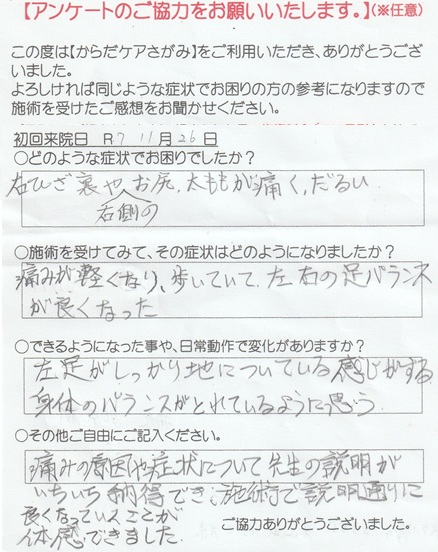 【アンケートのご協力をお願いいたします。】(※任意)
この度は【からだケアさがみ】をご利用いただき、ありがとうござ
いました。
よろしければ同じような症状でお困りの方の参考になりますので
施術を受けたご感想をお聞かせください。
初回来院日 R7 11月26日
○どのような症状でお困りでしたか?
右ひざ裏や右側のお尻、太ももが痛く、だるい
○施術を受けてみて、その症状はどのようになりましたか?
痛みが軽くなり、歩いていて、左右の足バランス
が良くなった
○できるようになった事や、日常動作で変化がありますか?
左足がしっかり地についている感じがする
身体のバランスがとれているように思う
○その他ご自由にご記入ください。
痛みの原因や症状について先生の説明が
いちいち納得でき、施術で説明通りに
良くなっていくことが
体感できました
ご協力ありがとうございました。